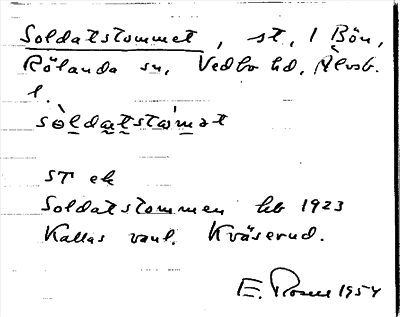 Soldatstommet, st, 1 Bön,
Rölanda sn, Vedbo hd, Älvsb.
l.
sòldatstómat
ST ek
Soldatstommen hb 1923
Kallas vanl. Kväserud.
E. Rosell 1954